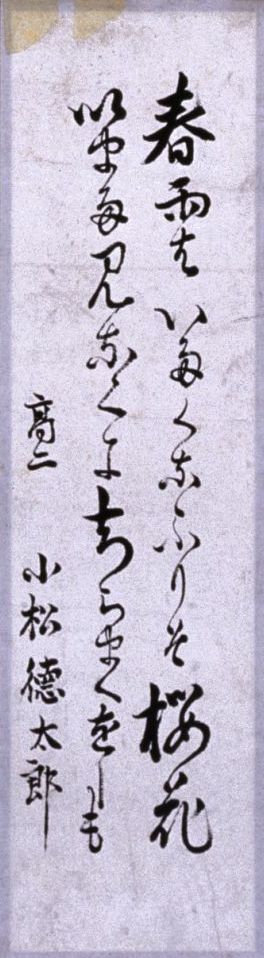 春雨はいたくなふりそ桜花
いまだ見なくにちらまくをしも
高二 小松徳太郎